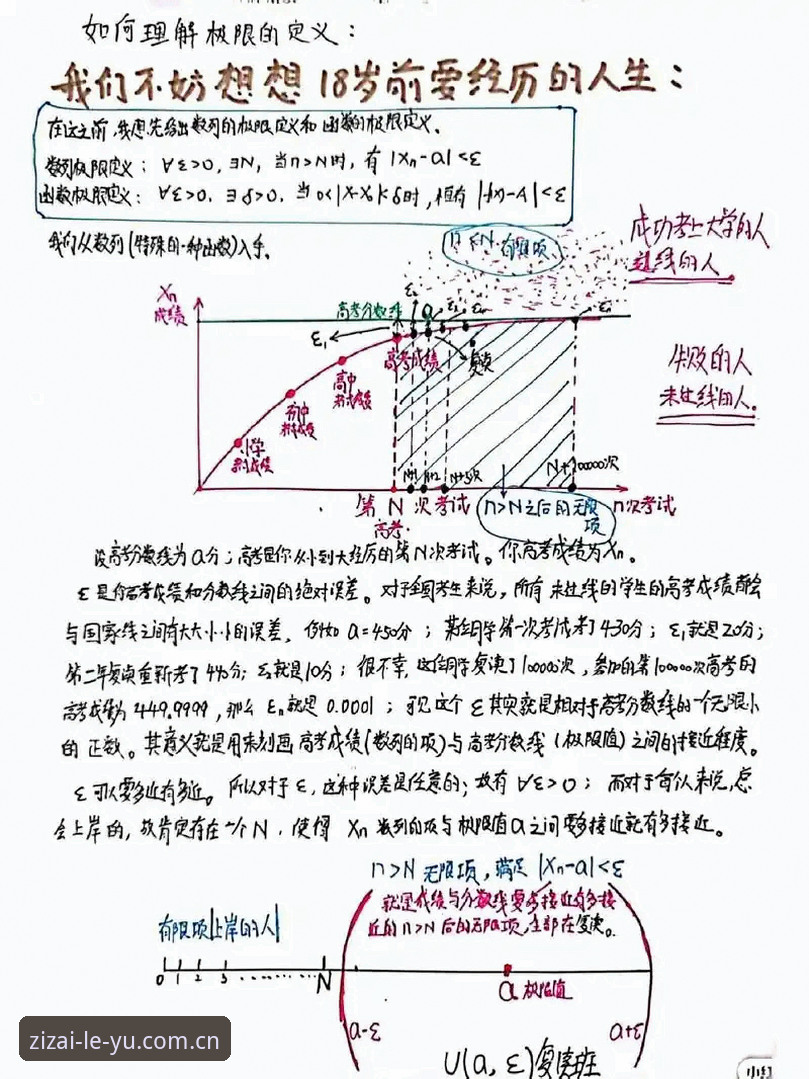 如何理解极限的定义：
我们不妨想想18岁前要经历的人生：
在这之前，我患先给出数列的极限定义和函数的极限定义。
数列极限定义：∀ε>0，∃N，当n>N时，有 |Xn-a|<ε
函数极限定义：∀ε>0，∃δ>0，当0<|X-X₀|<δ时，恒有 |f(x)-A|<ε
我们从数列(特殊的一种函数)入手。
n≤N 有限项
成功考上大学的人
过线的人
Xn
成绩
高考分数线
a
ε₁
高考成绩
复读
高中
考试成绩
初中
考试成绩
小学
考试成绩
失败的人
未过线的人。
N+1
N+2
N+3次
N+100000次
第 N 次考试
高考.
n>N之后的无限项
n次考试
设高考分数线为a分；高考是你从小到大经历的第N次考试。你高考成绩为Xn。
ε是你高考成绩和分数线之间的绝对误差。对于全国考生来说，所有未过线的学生的高考成绩都会
与国家线之间有大大小小的误差，例如 a=450分；某组同学第一次考试考了430分；ε₁就是20分；
第二年复读重新考了440分；ε₂就是10分；很不幸，这位同学复读了100000次，参加的第100000次高考的
高考成绩为449.9999，那么 εn就是 0.0001；可见这个ε其实就是相对于高考分数线的一个无限小
的正数。其意义就是用来刻画高考成绩(数列的项)与高考分数线(极限值)之间的接近程度。
ε可以要多近有多近。所以对于ε，这种误差是任意的；故有∀ε>0；而对于每个人来说，总
会上岸的，故肯定存在一个N，使得 Xn 数列的项与极限值a之间要多接近就有多接近。
n>N 无限项，满足 |Xn-a|<ε
就是成绩与分数线要多接近有多接
近的n>N后的无限项，全部在复读。
有限项|上岸的人|
0 1 2 3 ......... N
a 极限值
a-ε
a+ε
U(a, ε)复读班
zizai-le-yu.com.cn
小红